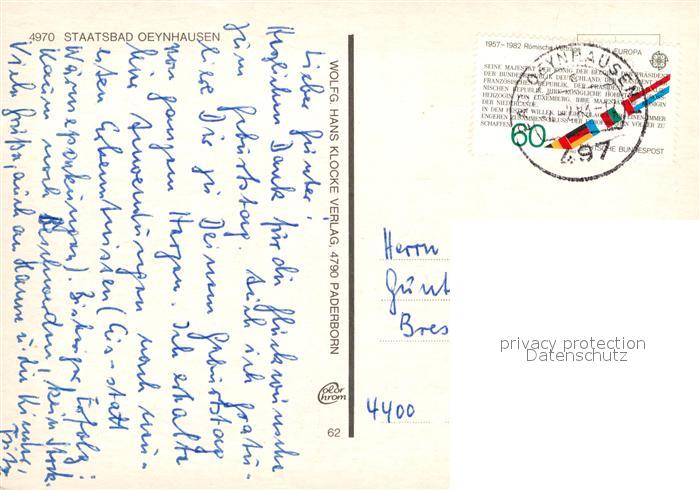 4970 STAATSBAD OEYNHAUSEN
Lieber Günter,
Herzlichen Dank für die Glückwünsche
zum Geburtstag. Auch ich gratu-
liere Dir zu Deinem Geburtstag
von ganzem Herzen. Ich erhalte
hier Anwendungen nach neu-
esten Erkenntnissen (Eis statt
Wärmepackungen). Bisheriger Erfolg:
kaum noch Beschwerden, kein Stock.
Viele Grüße, auch an Hanne u. die Kinder,
Fritz
WOLFG. HANS KLOCKE VERLAG, 4790 PADERBORN
Color
Chrom
62
1957-1982 Römische EUROPA
SEINE MAJESTÄT DER KÖNIG DER BELGIER, PRÄSIDENT
DER BUNDESREPUBLIK DEUTSCHLAND, DER
FRANZÖSISCHEN REPUBLIK, DER PRÄSIDENT
REPUBLIK, IHRE KÖNIGLICHE HOHEIT
HERZOGIN VON LUXEMBURG, IHRE MAJESTÄT KÖNIGIN
DER NIEDERLANDE,
IN DEM FESTEN WILLEN, DIE IMMER
ENGEREN ZUSAMMENSCHLUSS DER VÖLKER ZU
SCHAFFEN
60
DEUTSCHE BUNDESPOST
BAD OEYNHAUSEN
497
Herrn
Günt
Bres
4400
privacy protection
Datenschutz